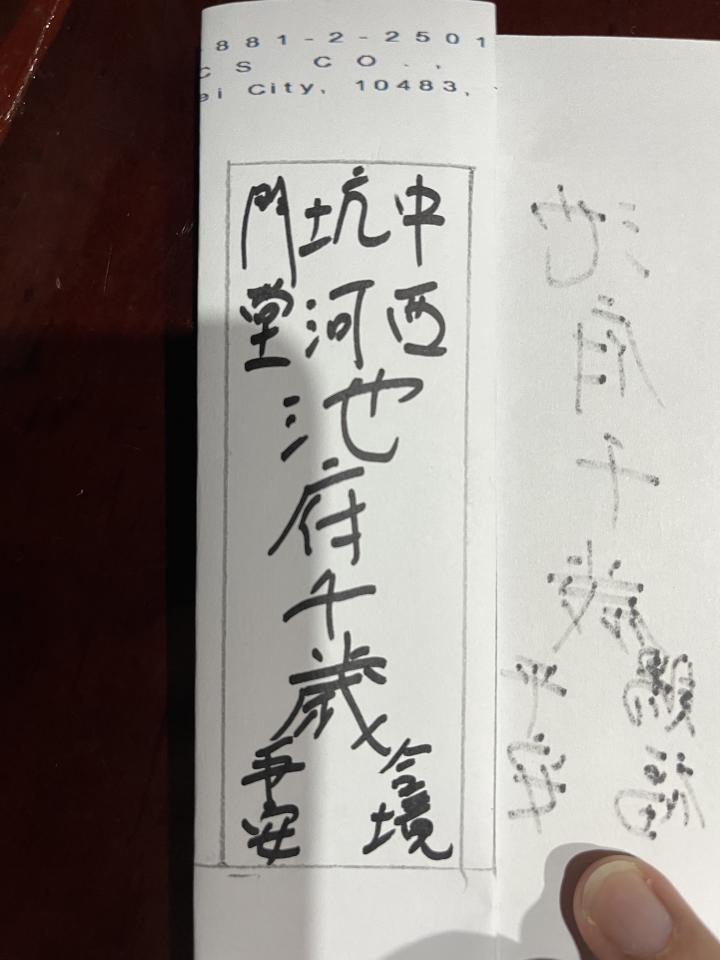 881-2-2501
CS CO.,
ei City, 10483,
中坑門
西河堂
池府千歲
合境
平安
池府千歲
賜福
平安